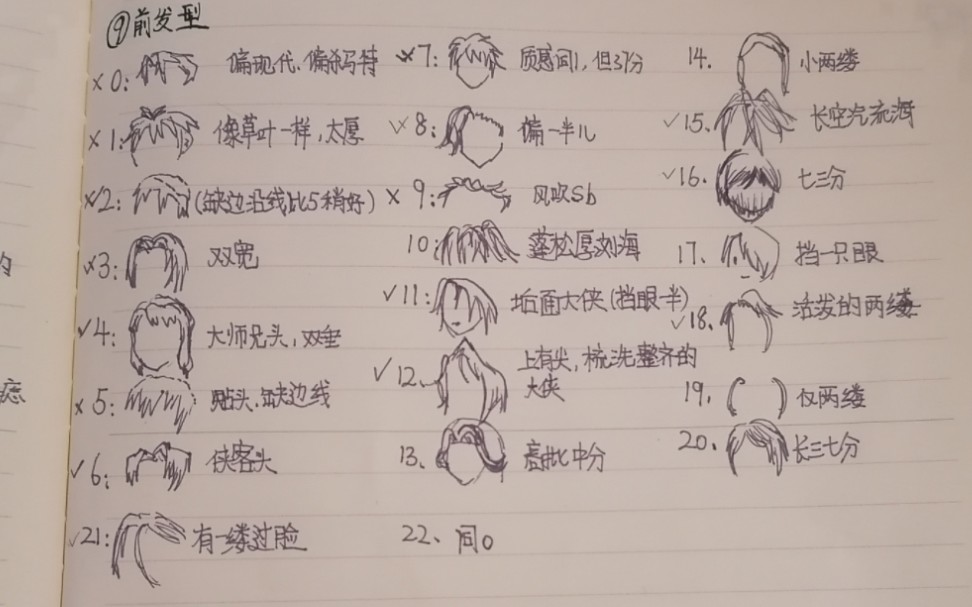 ⑨前发型
×0: 偏现代、偏杀马特
×1: 像草叶一样，太厚
×2: (缺边沿线比5稍好)
×3: 双宽
✓4: 大师兄头，双垂
×5: 贴头、缺边线
✓6: 侠客头
✓21: 有一缕过脸
×7: 质感同1，但3/7分
✓8: 偏一半儿
×9: 风吹Sb
10: 蓬松厚刘海
✓11: 垢面大侠(挡眼一半)
✓12、上有尖，梳洗整齐的
大侠
13、高批中分
22、同0
14. 小两缕
✓15. 长空气流海
✓16. 七三分
17. 挡一只眼
✓18. 活发的两缕
19. 仅两缕
20、长三七分